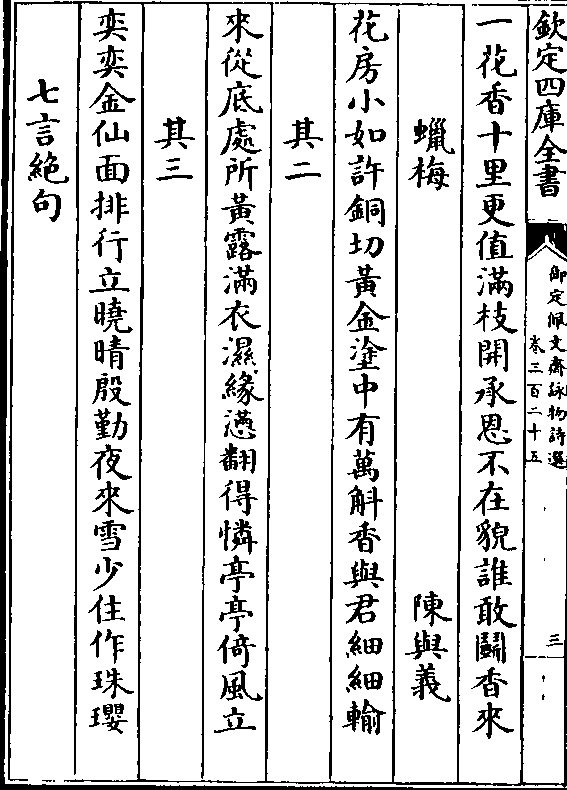 欽定四庫全書
御定佩文齋詠物詩選
卷三百二十五
三
一花香十里更值滿枝開承恩不在貌誰敢鬭香來
蠟梅
陳與義
花房小如許銅切黃金塗中有萬斛香與君細細輸
其二
來從底處所黃露滿衣濕緣憨翻得憐亭亭倚風立
其三
奕奕金仙面排行立曉晴殷勤夜來雪少住作珠瓔
七言絶句